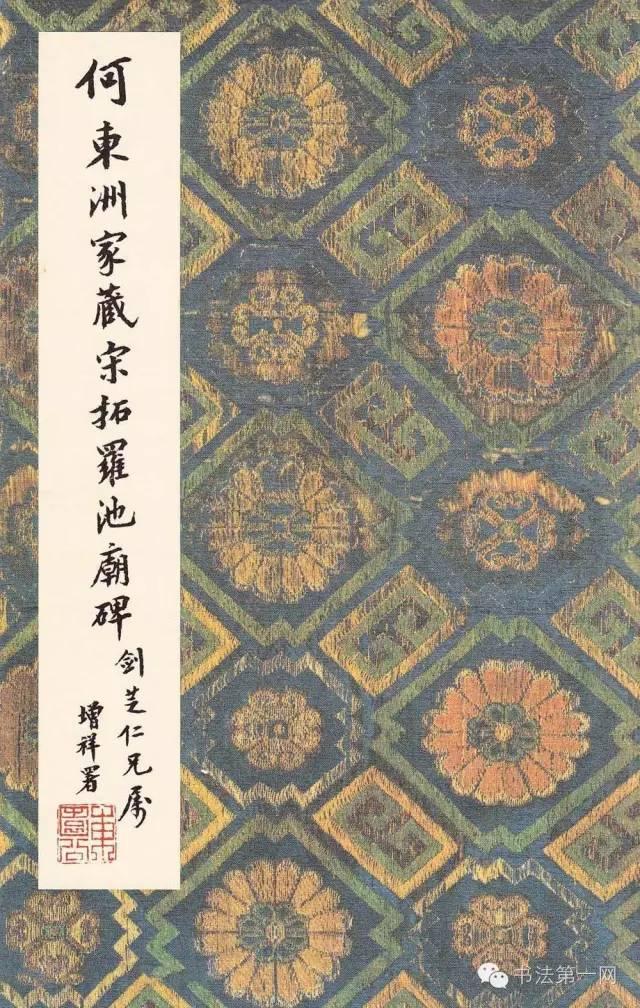 何東洲家蔵宋拓羅池廟碑
剑芝仁兄属
增祥署
书法第一网